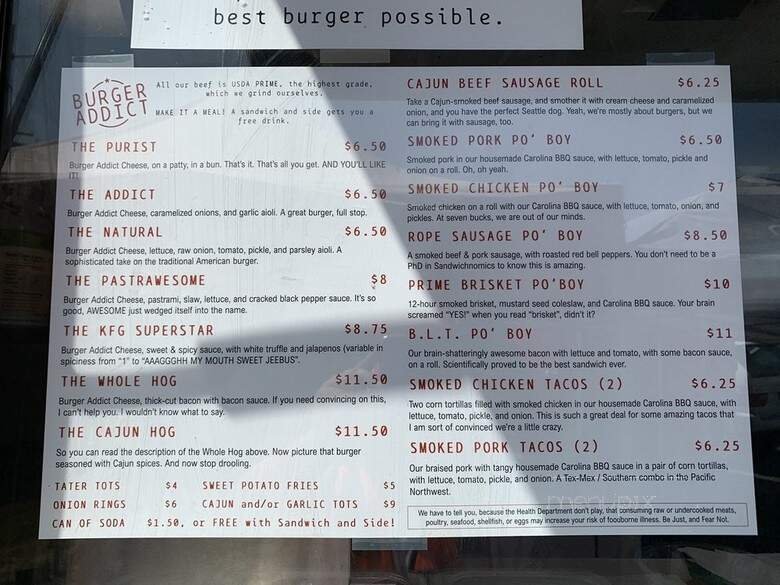 best burger possible.
BURGER ADDICT
All our beef is USDA PRIME, the highest grade,
which we grind ourselves.
MAKE IT A MEAL! A sandwich and side gets you a
free drink.
THE PURIST $6.50
Burger Addict Cheese, on a patty, in a bun. That's it. That's all you get. AND YOU'LL LIKE
IT!
THE ADDICT $6.50
Burger Addict Cheese, caramelized onions, and garlic aioli. A great burger, full stop.
THE NATURAL $6.50
Burger Addict Cheese, lettuce, raw onion, tomato, pickle, and parsley aioli. A
sophisticated take on the traditional American burger.
THE PASTRAWESOME $8
Burger Addict Cheese, pastrami, slaw, lettuce, and cracked black pepper sauce. It's so
good, AWESOME just wedged itself into the name.
THE KFG SUPERSTAR $8.75
Burger Addict Cheese, sweet & spicy sauce, with white truffle and jalapenos (variable in
spiciness from "1" to "AAAGGGHH MY MOUTH SWEET JEEBUS".
THE WHOLE HOG $11.50
Burger Addict Cheese, thick-cut bacon with bacon sauce. If you need convincing on this,
I can't help you. I wouldn't know what to say.
THE CAJUN HOG $11.50
So you can read the description of the Whole Hog above. Now picture that burger
seasoned with Cajun spices. And now stop drooling.
TATER TOTS $4 SWEET POTATO FRIES $5
ONION RINGS $6 CAJUN and/or GARLIC TOTS $9
CAN OF SODA $1.50, or FREE with Sandwich and Side!
CAJUN BEEF SAUSAGE ROLL $6.25
Take a Cajun-smoked beef sausage, and smother it with cream cheese and caramelized
onion, and you have the perfect Seattle dog. Yeah, we're mostly about burgers, but we
can bring it with sausage, too.
SMOKED PORK PO' BOY $6.50
Smoked pork in our housemade Carolina BBQ sauce, with lettuce, tomato, pickle and
onion on a roll. Oh, oh yeah.
SMOKED CHICKEN PO' BOY $7
Smoked chicken on a roll with our Carolina BBQ sauce, with lettuce, tomato, onion, and
pickles. At seven bucks, we are out of our minds.
ROPE SAUSAGE PO' BOY $8.50
A smoked beef & pork sausage, with roasted red bell peppers. You don't need to be a
PhD in Sandwichnomics to know this is amazing.
PRIME BRISKET PO'BOY $10
12-hour smoked brisket, mustard seed coleslaw, and Carolina BBQ sauce. Your brain
screamed "YES!" when you read "brisket", didn't it?
B.L.T. PO' BOY $11
Our brain-shatteringly awesome bacon with lettuce and tomato, with some bacon sauce,
on a roll. Scientifically proved to be the best sandwich ever.
SMOKED CHICKEN TACOS (2) $6.25
Two corn tortillas filled with smoked chicken in our housemade Carolina BBQ sauce, with
lettuce, tomato, pickle, and onion. This is such a great deal for some amazing tacos that
I am sort of convinced we're a little crazy.
SMOKED PORK TACOS (2) $6.25
Our braised pork with tangy housemade Carolina BBQ sauce in a pair of corn tortillas,
with lettuce, tomato, pickle, and onion. A Tex-Mex / Southern combo in the Pacific
Northwest.
We have to tell you, because the Health Department don't play, that consuming raw or undercooked meats,
poultry, seafood, shellfish, or eggs may increase your risk of foodborne illness. Be Just, and Fear Not.